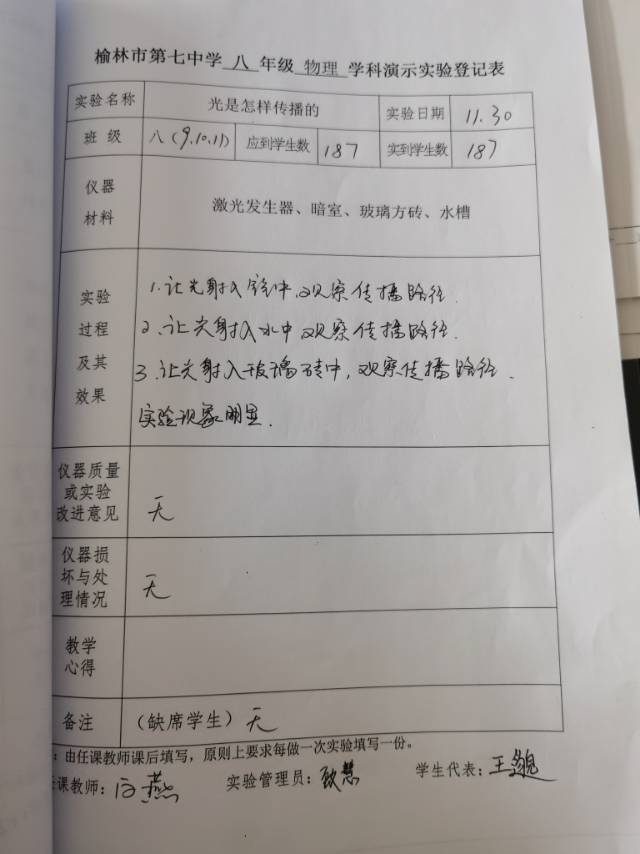 榆林市第七中学 八 年级 物理 学科演示实验登记表
实验名称 光是怎样传播的 实验日期 11.30
班 级 八(9,10,11) 应到学生数 187 实到学生数 187
仪器
材料
激光发生器、暗室、玻璃方砖、水槽
实验
过程
及其
效果
1.让光射入 中,观察传播路径.
2.让光射入水中观察传播路径.
3.让光射入玻璃砖中,观察传播路径.
实验现象明显.
仪器质量
或实验
改进意见
无
仪器损
坏与处
理情况
无
教学
心得
备注 (缺席学生) 无
:由任课教师课后填写,原则上要求每做一次实验填写一份。
课教师: 白燕 实验管理员: 慧 学生代表: 王